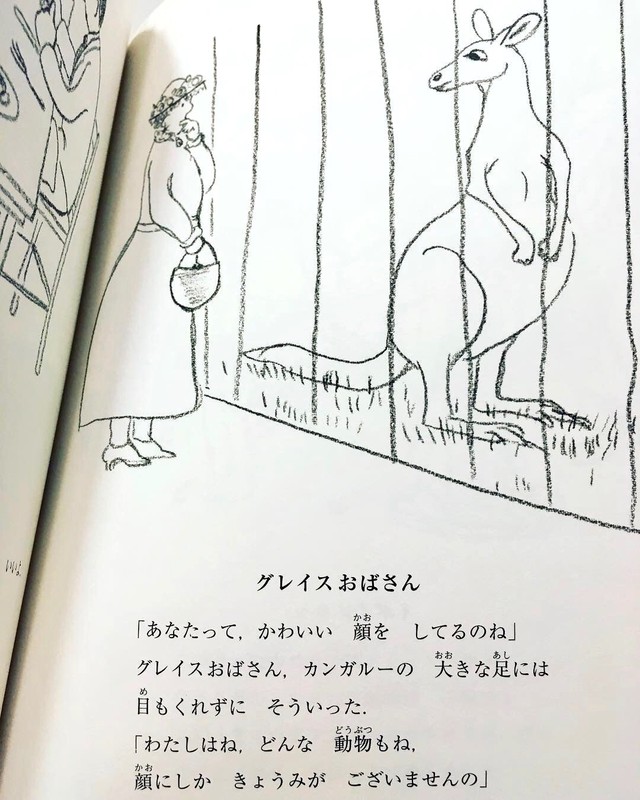 グレイスおばさん
「あなたって，かわいい　顔を　してるのね」
グレイスおばさん，カンガルーの　大きな足には
目もくれずに　そういった．
「わたしはね，どんな　動物もね，
顔にしか　きょうみが　ございませんの」